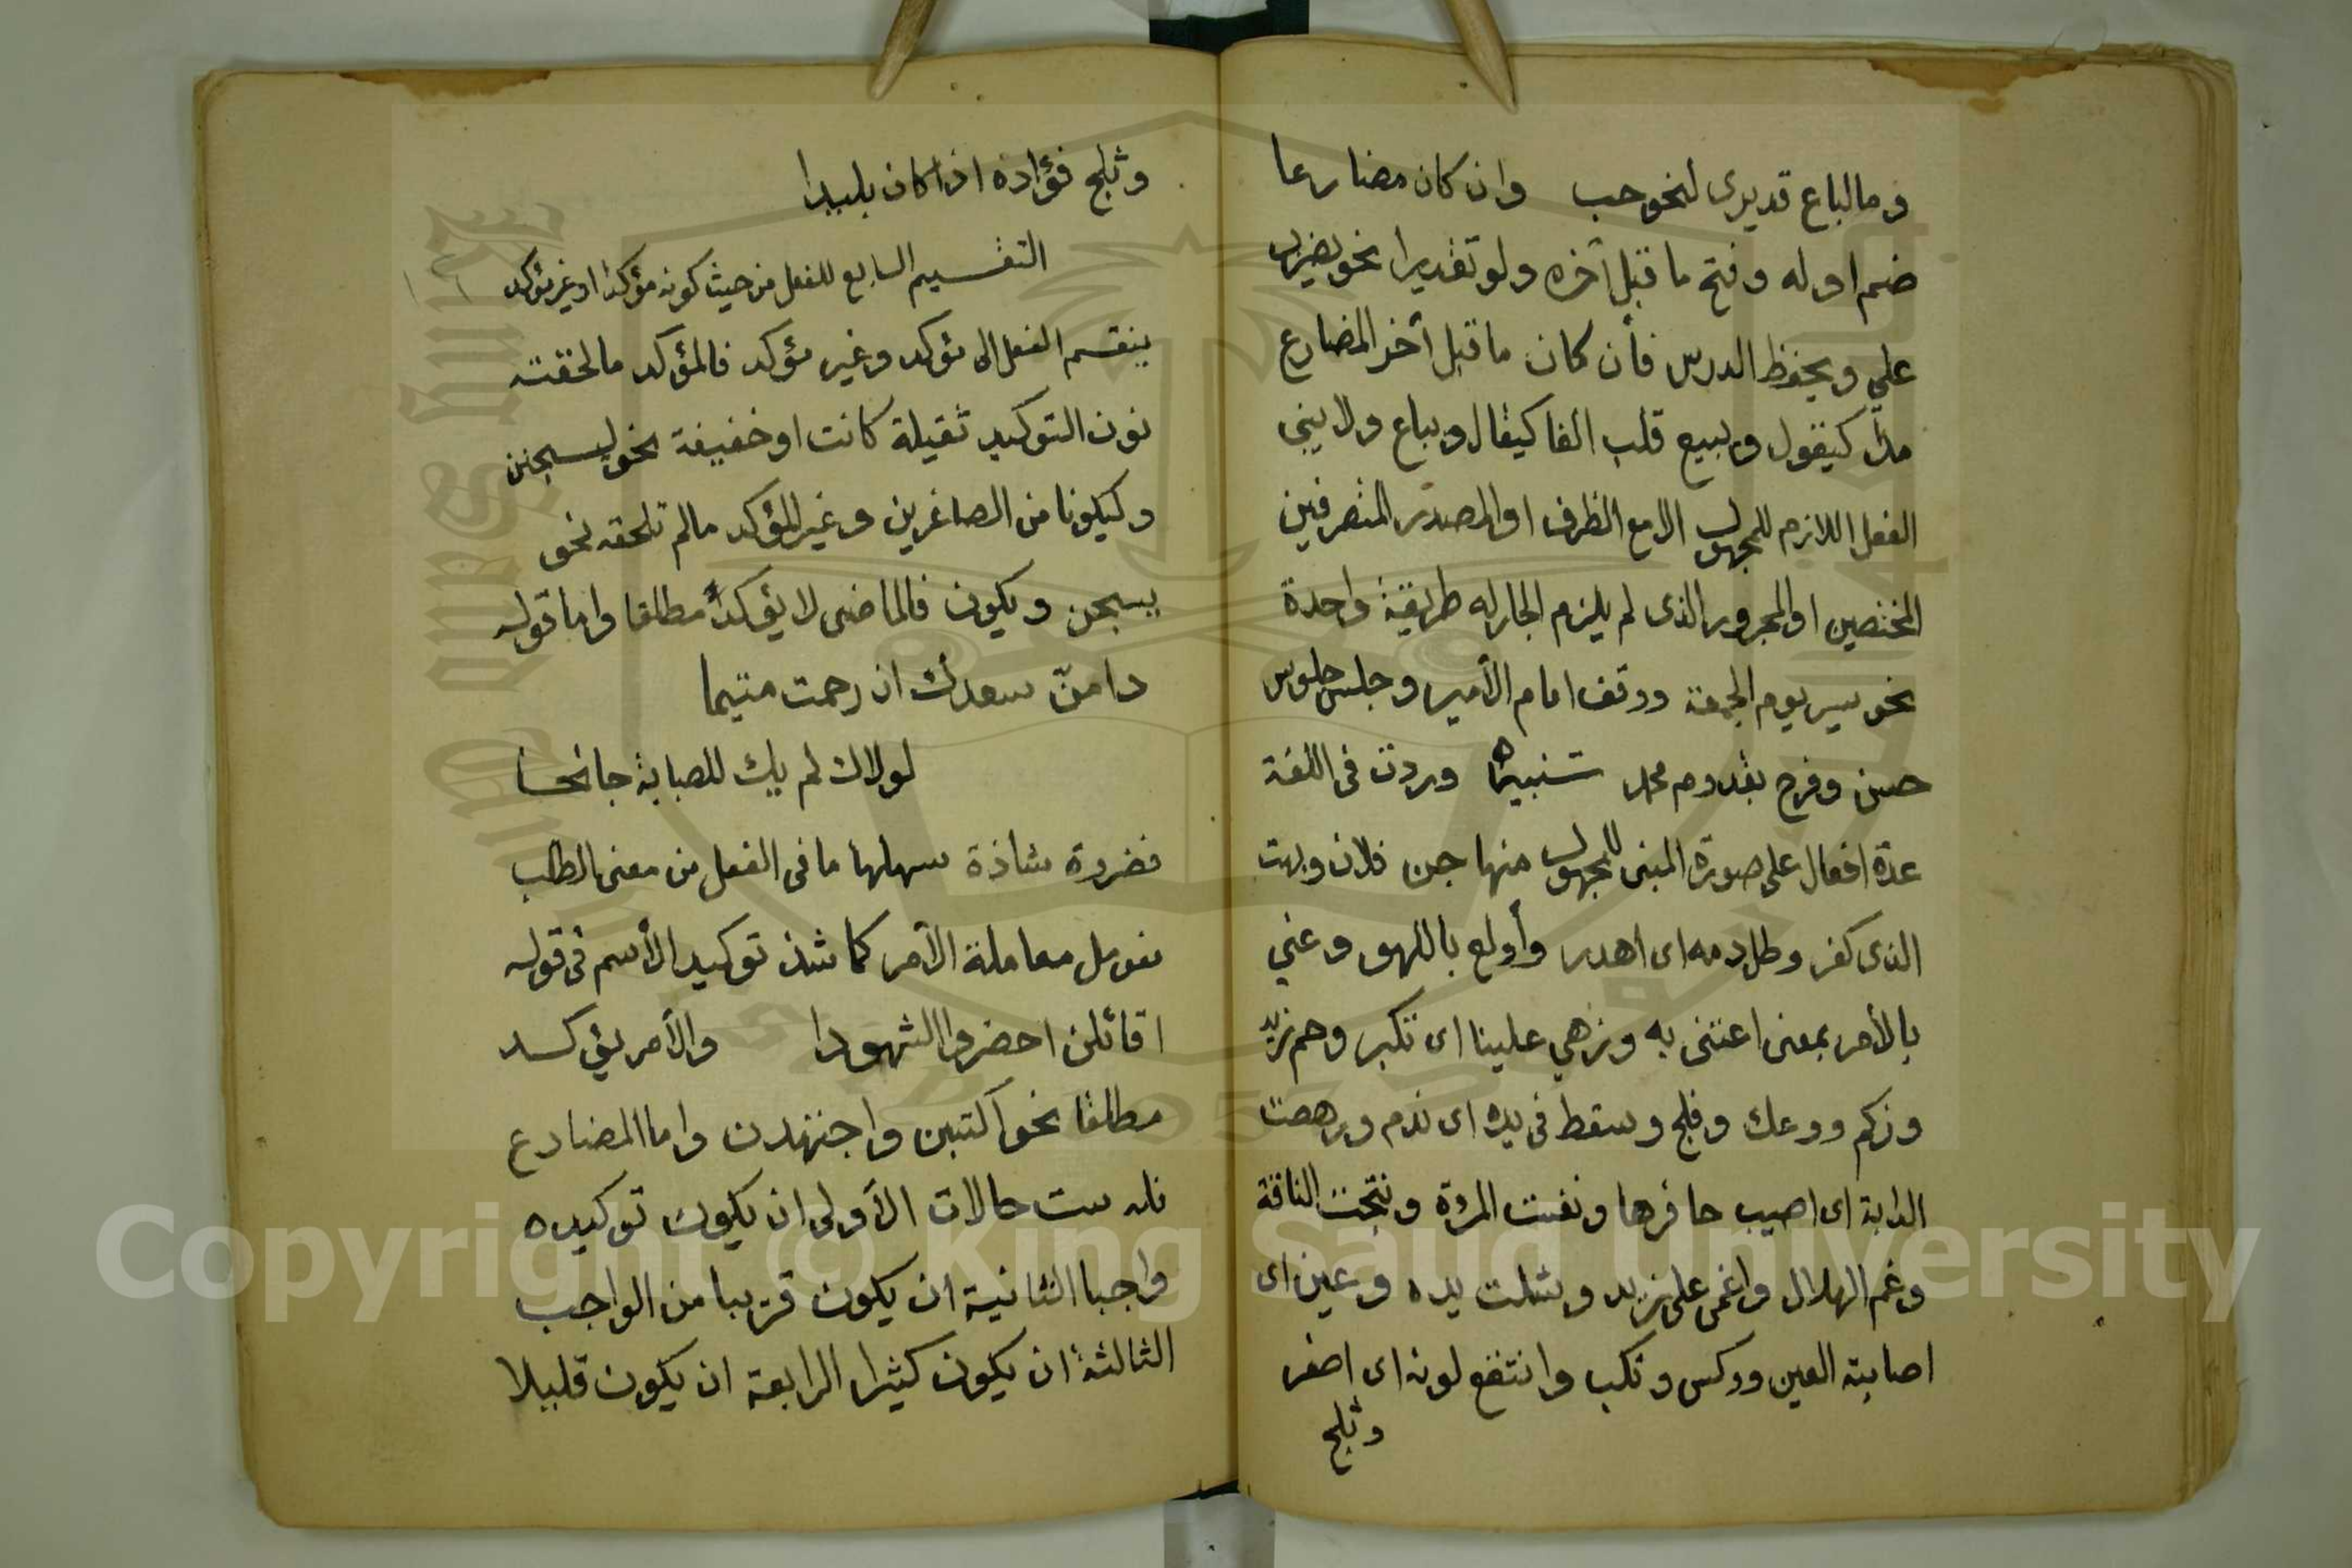 وما لباع قديرى لنحو حب وان كان مضارعا
ضم اوله وفتح ما قبل آخره ولو تقديرا نحو يضرب
علي ويحفظ الدرس فأن كان ما قبل آخر المضارع
مدا كيقول ويبيع قلب الفا كيقال ويباع ولا يبنى
الفعل اللازم للمجهول الا مع الظرف او المصدر المتصرفين
المختصين او المجرور الذى لم يلزم الجار له طريقة واحدة
نحو سير يوم الجمعة ووقف امام الأمير وجلس جلوس
حسن وفرح بقدوم محمد تنبيه وردت فى اللغة
عدة افعال على صورة المبنى للمجهول منها جن فلان وبهت
الذى كفر وطل دمه اى اهدر وأولع باللهو وعني
بالأمر بمعنى اعتنى به وزهي علينا اى تكبر وحم زيد
وزكم ووعك وفلج وسقط فى يده اى ندم ورهصت
الدابة اى اصيب حافرها ونفست المرءة ونتجت الناقة
وغم الهلال واغمى على زيد وشلت يده وعين اى
اصابته العين ووكس ونكب وانتقع لونه اى اصفر
وثلج
وثلج فؤاده اذا كان بليدا
التقسيم السابع للفعل من حيث كونه مؤكدا او غير مؤكد
ينقسم الفعل الى مؤكد وغير مؤكد فالمؤكد ما لحقته
نون التوكيد ثقيلة كانت او خفيفة نحو ليسجنن
وليكونا من الصاغرين وغير المؤكد مالم تلحقه نحو
يسجن ويكون فالماضى لا يؤكد مطلقا واما قوله
دامنّ سعدك ان رحمت متيما
لولاك لم يك للصبابة جانحا
فضروة شاذة سهلها ما فى الفعل من معنى الطلب
فعومل معاملة الأمر كما شذ توكيد الأسم فى قوله
اقائلن احضروا الشهودا والأمر يؤكد
مطلقا نحو اكتبن واجتهدن واما المضارع
فله ست حالات الأولى ان يكون توكيده
واجبا الثانية ان يكون قريبا من الواجب
الثالثة ان يكون كثيرا الرابعة ان يكون قليلا
Copyright © King Saud University